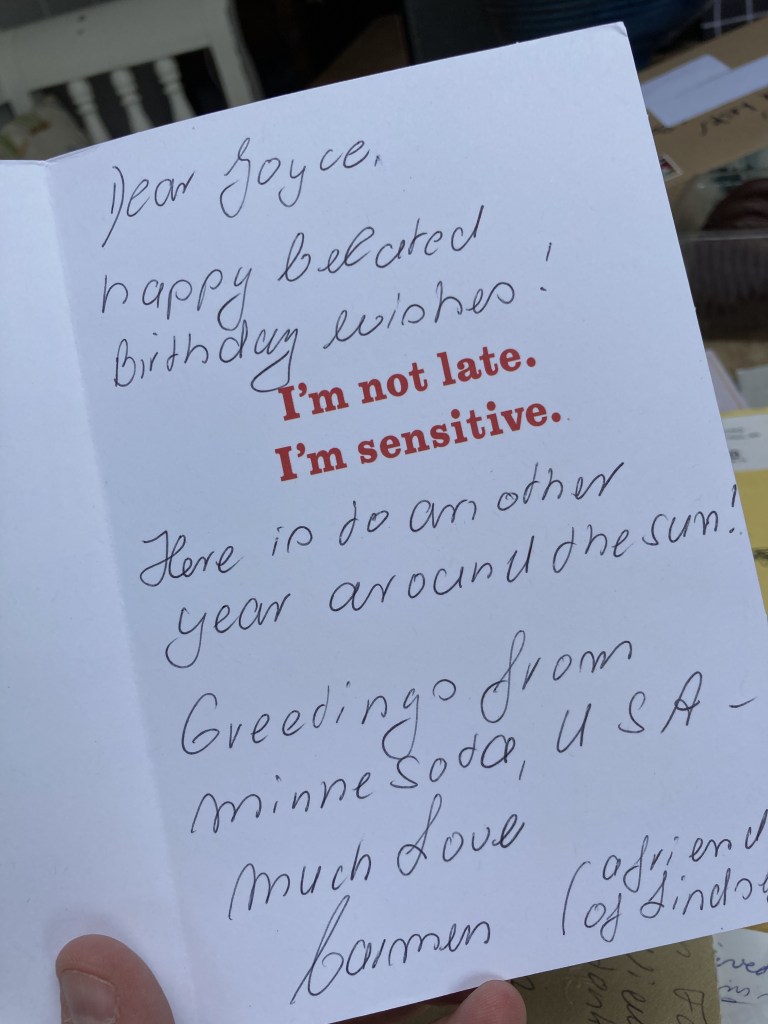 Dear Joyce,
happy belated
Birthday wishes!
I'm not late.
I'm sensitive.
Here is to an other
year around the sun!
Greetings from
minnesota, USA –
much Love
Carmen (a friend
of Linds